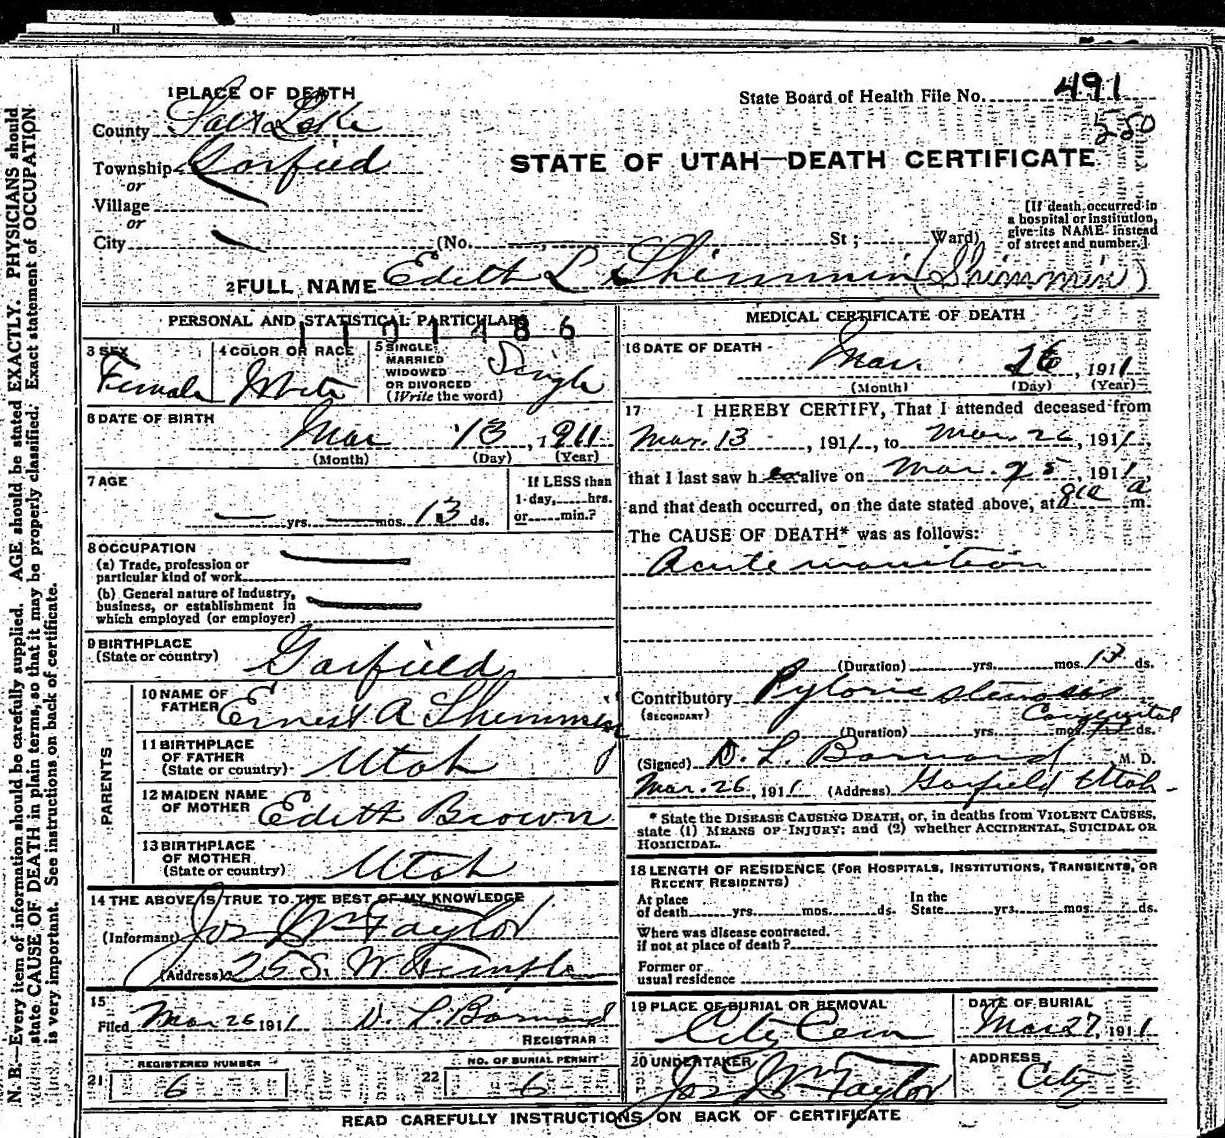 1 PLACE OF DEATH
State Board of Health File No. 491
550
County Salt Lake
Township Garfield
or
Village
or
City (No. St; Ward)
[If death occurred in a hospital or institution, give its NAME instead of street and number.]
STATE OF UTAH—DEATH CERTIFICATE
2 FULL NAME Edith L Shimmin (Shimmin)
PERSONAL AND STATISTICAL PARTICULARS
3 SEX
Female
4 COLOR OR RACE
White
5 SINGLE
MARRIED
WIDOWED
OR DIVORCED
(Write the word)
Single
6 DATE OF BIRTH
Mar 13, 1911
(Month) (Day) (Year)
7 AGE
— yrs. — mos. 13 ds.
If LESS than
1 day, hrs.
or min.?
8 OCCUPATION
(a) Trade, profession or
particular kind of work
(b) General nature of industry,
business, or establishment in
which employed (or employer)
9 BIRTHPLACE
(State or country) Garfield
PARENTS
10 NAME OF
FATHER Ernest A Shimmin
11 BIRTHPLACE
OF FATHER
(State or country) Utah
12 MAIDEN NAME
OF MOTHER Edith Brown
13 BIRTHPLACE
OF MOTHER
(State or country) Utah
14 THE ABOVE IS TRUE TO THE BEST OF MY KNOWLEDGE
(Informant) Jos Wm Taylor
(Address) 25 S. W Temple
15
Filed Mar 26 1911 D. L. Barnard
REGISTRAR
REGISTERED NUMBER
21 6
NO. OF BURIAL PERMIT
22 6
MEDICAL CERTIFICATE OF DEATH
16 DATE OF DEATH
Mar. 26, 1911
(Month) (Day) (Year)
17 I HEREBY CERTIFY, That I attended deceased from
Mar. 13, 1911, to Mar. 26, 1911,
that I last saw her alive on Mar. 25, 1911,
and that death occurred, on the date stated above, at a m.
The CAUSE OF DEATH* was as follows:
Acute inanition
(Duration) yrs. mos. 13 ds.
Contributory Pyloric stenosis
(SECONDARY)
Congenital
(Duration) yrs. mos. ds.
(Signed) D. L. Barnard M. D.
Mar. 26, 1911 (Address) Garfield Utah
* State the DISEASE CAUSING DEATH, or, in deaths from VIOLENT CAUSES,
state (1) MEANS OF INJURY; and (2) whether ACCIDENTAL, SUICIDAL OR
HOMICIDAL.
18 LENGTH OF RESIDENCE (FOR HOSPITALS, INSTITUTIONS, TRANSIENTS, OR
RECENT RESIDENTS)
At place
of death yrs. mos. ds.
In the
State yrs. mos. ds.
Where was disease contracted.
if not at place of death?
Former or
usual residence
19 PLACE OF BURIAL OR REMOVAL
City Cem
DATE OF BURIAL
Mar 27, 1911
20 UNDERTAKER
Jos Wm Taylor
ADDRESS
City
READ CAREFULLY INSTRUCTIONS ON BACK OF CERTIFICATE
N. B.—Every item of information should be carefully supplied. AGE should be stated EXACTLY. PHYSICIANS should
state CAUSE OF DEATH in plain terms, so that it may be properly classified. Exact statement of OCCUPATION
is very important. See instructions on back of certificate.